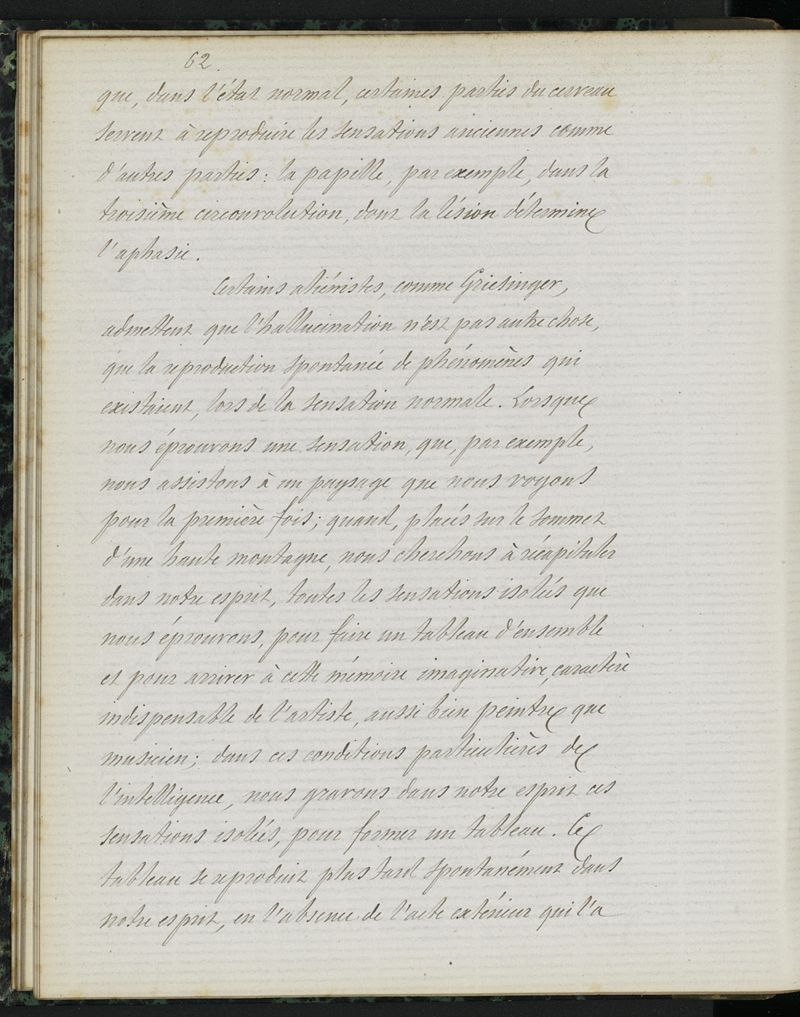 62.
que, dans l'état normal, certaines parties du cerveau
servent à reproduire les sensations anciennes comme
d'autres parties : la papille, par exemple, dans la
troisième circonvolution, dont la lésion détermine
l'aphasie.
Certains aliénistes, comme Griesinger,
admettent que l'hallucination n'est pas autre chose,
que la reproduction spontanée de phénomènes qui
existaient, lors de la sensation normale. Lorsque
nous éprouvons une sensation, que, par exemple,
nous assistons à un paysage que nous voyons
pour la première fois ; quand, placés sur le sommet
d'une haute montagne, nous cherchons à récapituler
dans notre esprit, toutes les sensations isolées que
nous éprouvons, pour faire un tableau d'ensemble
et pour arriver à cette mémoire imaginative, caractère
indispensable de l'artiste, aussi bien peintre que
musicien ; dans ces conditions particulières de
l'intelligence, nous gravons dans notre esprit ces
sensations isolées, pour former un tableau. Ce
tableau se reproduit plus tard spontanément dans
notre esprit, en l'absence de l'acte extérieur qui l'a